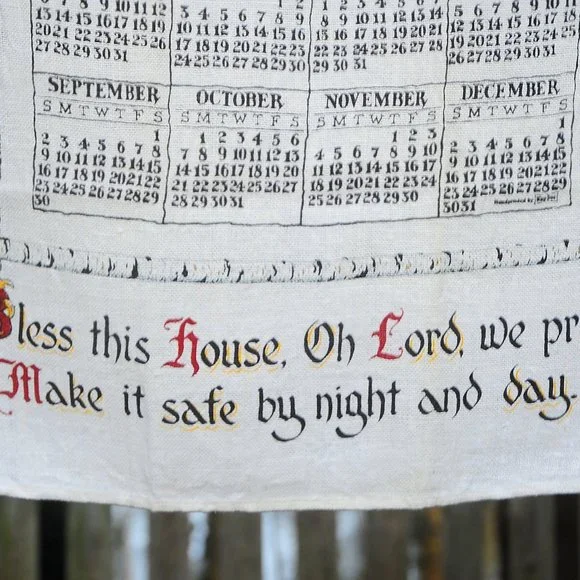 7 8 9 10 11 12
13 14 15 16 17 18 19
20 21 22 23 24 25 26
27 28 29 30 31
1 2
3 4 5 6 7 8 9
10 11 12 13 14 15 16
17 18 19 20 21 22 23
24 25 26 27 28 29 30
1 2 3 4 5 6 7
8 9 10 11 12 13 14
15 16 17 18 19 20 21
22 23 24 25 26 27 28
29 30 31
5 6 7 8 9 10 11
12 13 14 15 16 17 18
19 20 21 22 23 24 25
26 27 28 29 30 31
SEPTEMBER
S M T W T F S
1
2 3 4 5 6 7 8
9 10 11 12 13 14 15
16 17 18 19 20 21 22
23 24 25 26 27 28 29
30
OCTOBER
S M T W T F S
1 2 3 4 5 6
7 8 9 10 11 12 13
14 15 16 17 18 19 20
21 22 23 24 25 26 27
28 29 30 31
NOVEMBER
S M T W T F S
1 2 3
4 5 6 7 8 9 10
11 12 13 14 15 16 17
18 19 20 21 22 23 24
25 26 27 28 29 30
DECEMBER
S M T W T F S
1
2 3 4 5 6 7 8
9 10 11 12 13 14 15
16 17 18 19 20 21 22
23 24 25 26 27 28 29
30 31
Bless this House, Oh Lord, we pr
Make it safe by night and day.